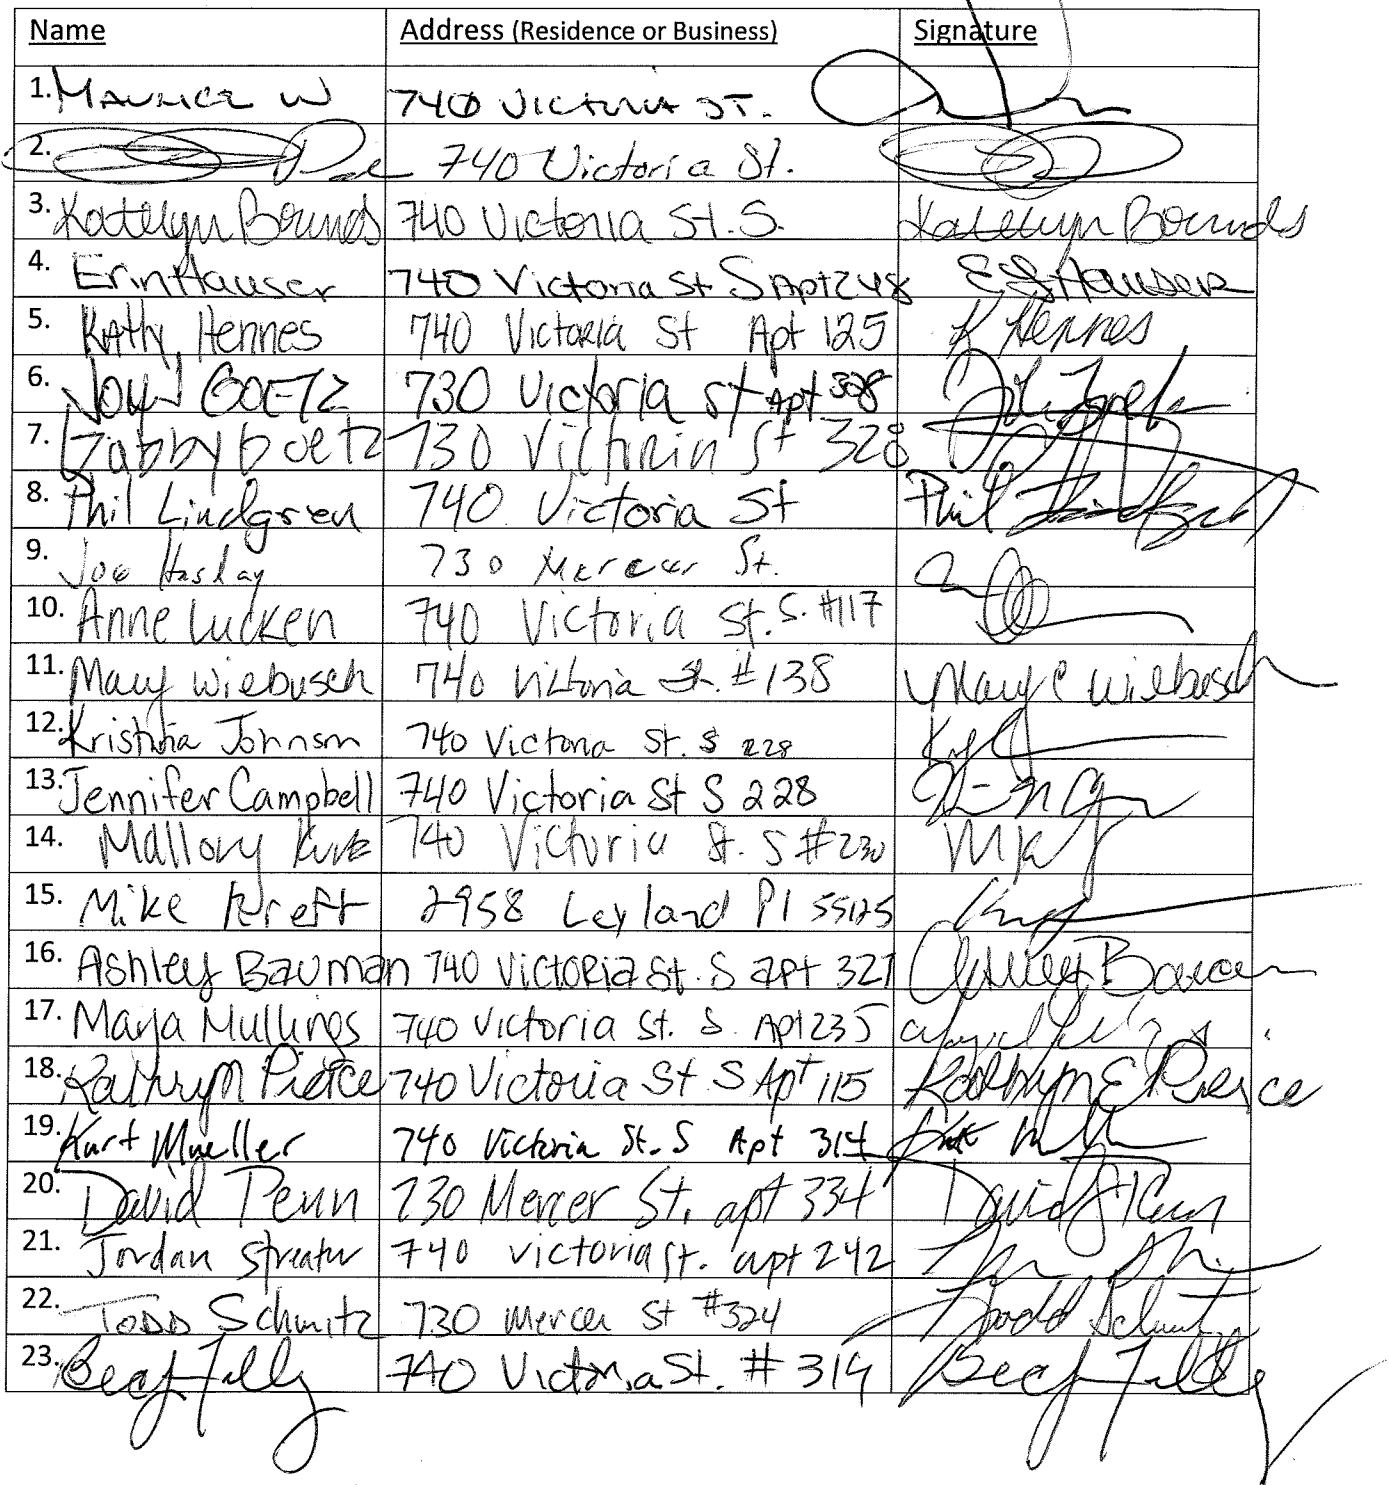 Name Address (Residence or Business) Signature
1. MAURICE W 740 VICTORIA ST.
2. 740 Victoria St.
3. Katelyn Bounds 740 Victoria St. S. Katelyn Bounds
4. Erin Hauser 740 Victoria St S Apt 248 E S Hauser
5. Kathy Hennes 740 Victoria St Apt 125 K Hennes
6. JOHN GOETZ 730 Victoria St Apt 328
7. Gabby Goetz 730 Victoria St 328
8. Phil Lindgren 740 Victoria St Phil Lindgren
9. Joe 730 Mercer St.
10. Anne Lucken 740 Victoria St. S. #117
11. Mary Wiebusch 740 Victoria St. #138 Mary C Wiebusch
12. Kristina Johnson 740 Victoria St. S 228
13. Jennifer Campbell 740 Victoria St S 228
14. Mallory 740 Victoria St. S #230
15. Mike Kreft 2958 Leyland Pl 55125
16. Ashley Bauman 740 Victoria St. S apt 327 Ashley Bauman
17. Maya Mullings 740 Victoria St. S. Apt 235
18. Kathryn Pierce 740 Victoria St S Apt 115 Kathryn E Pierce
19. Kurt Mueller 740 Victoria St. S Apt 314
20. David Penn 730 Mercer St. apt 334 David J Penn
21. Jordan Streater 740 Victoria St. apt 242
22. TODD Schmitz 730 Mercer St #324 Todd Schmitz
23. 740 Victoria St. #314